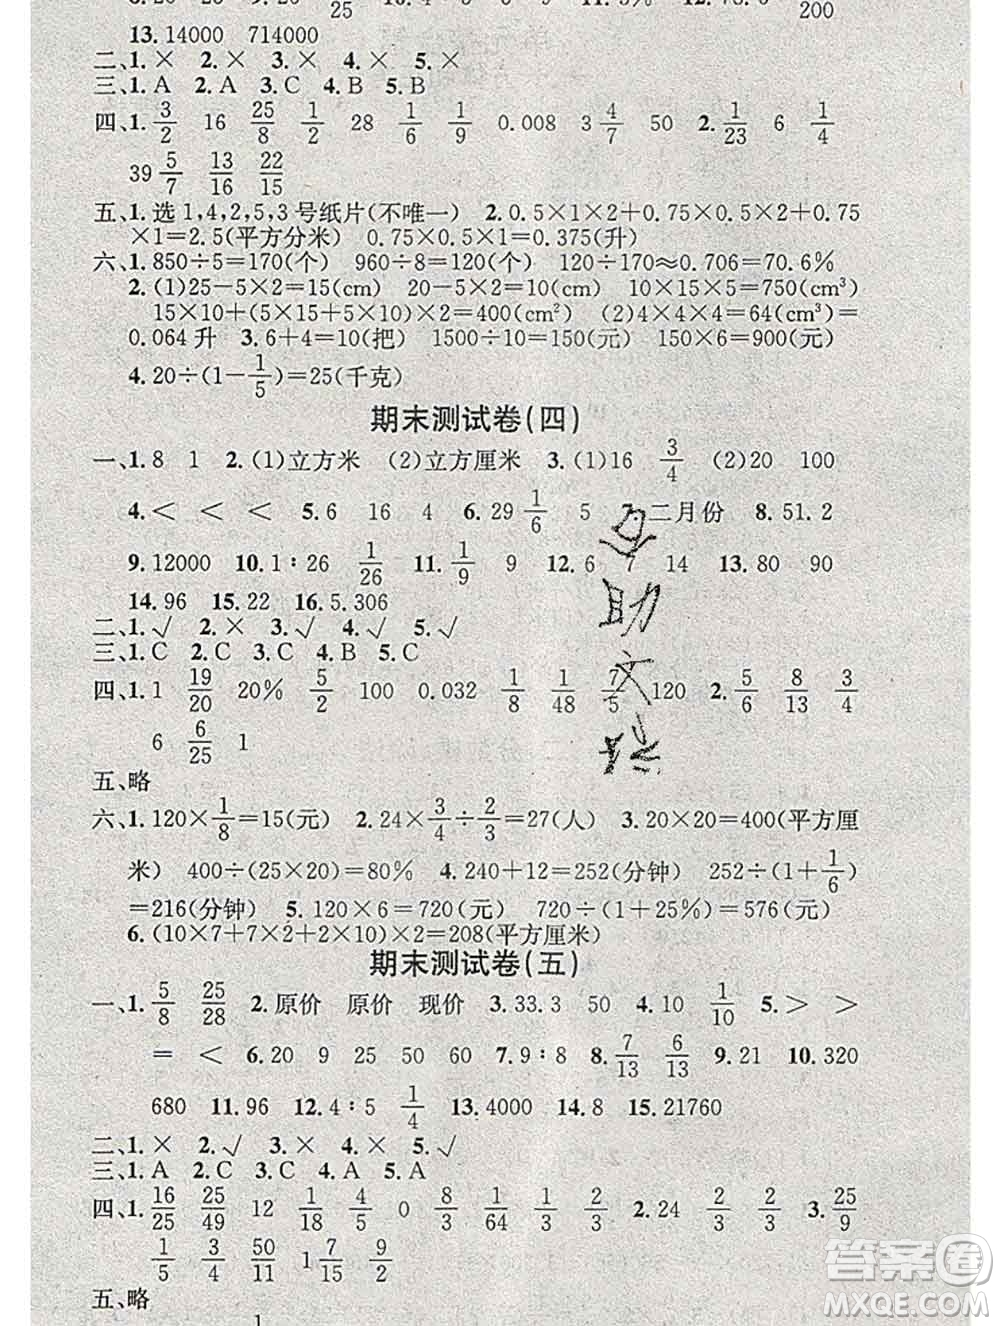 13. 14000 714000
二、1. × 2. × 3. × 4. × 5. ×
三、1. A 2. A 3. C 4. B 5. B
四、1. 3/2 16 25/8 1/2 28 1/6 1/9 0.008 3 4/7 50 2. 1/23 6 1/4
39 5/7 13/16 22/15
五、1. 选 1,4,2,5,3 号纸片(不唯一) 2. 0.5×1×2+0.75×0.5×2+0.75
×1=2.5(平方分米) 0.75×0.5×1=0.375(升)
六、1. 850÷5=170(个) 960÷8=120(个) 120÷170≈0.706=70.6%
2. (1)25-5×2=15(cm) 20-5×2=10(cm) 10×15×5=750(cm³)
15×10+(5×15+5×10)×2=400(cm²) (2)4×4×4=64(cm³)=
0.064 升 3. 6+4=10(把) 1500÷10=150(元) 150×6=900(元)
4. 20÷(1-1/5)=25(千克)
期末测试卷(四)
一、1. 8 1 2. (1)立方米 (2)立方厘米 3. (1)16 3/4 (2)20 100
4. < < < 5. 6 16 4 6. 29 1/6 5 7. 二月份 8. 51.2
9. 12000 10. 1∶26 1/26 11. 1/9 9 12. 6 7 14 13. 80 90
14. 96 15. 22 16. 5.306
二、1. √ 2. × 3. √ 4. √ 5. √
三、1. C 2. C 3. C 4. B 5. C
四、1. 1 19/20 20% 5/2 100 0.032 1/8 1/48 7/5 120 2. 5/6 8/13 3/4
6 6/25 1
五、略
六、1. 120×1/8=15(元) 2. 24×3/4÷2/3=27(人) 3. 20×20=400(平方厘
米) 400÷(25×20)=80% 4. 240+12=252(分钟) 252÷(1+1/6)
=216(分钟) 5. 120×6=720(元) 720÷(1+25%)=576(元)
6. (10×7+7×2+2×10)×2=208(平方厘米)
期末测试卷(五)
一、1. 5/8 25/28 2. 原价 原价 现价 3. 33.3 50 4. 10 1/10 5. > >
= < 6. 20 9 25 50 60 7. 9∶8 8. 7/13 6/13 9. 21 10. 320
680 11. 96 12. 4∶5 1/4 13. 4000 14. 8 15. 21760
二、1. × 2. √ 3. × 4. × 5. √
三、1. A 2. C 3. C 4. A 5. A
四、1. 16/25 25/49 12 1/18 4/5 0 8/3 1/64 2/3 2. 24 2/3 2/3 3. 25/9
1/5 3/4 50/11 1 7/15 9/2
五、略
答案圈
MXQE.COM